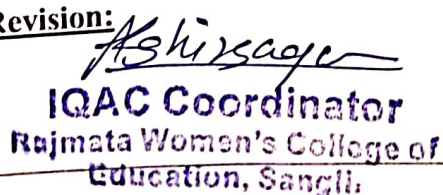 Revision:
Kshirsagar
IQAC Coordinator
Rajmata Women's College of
Education, Sangli.